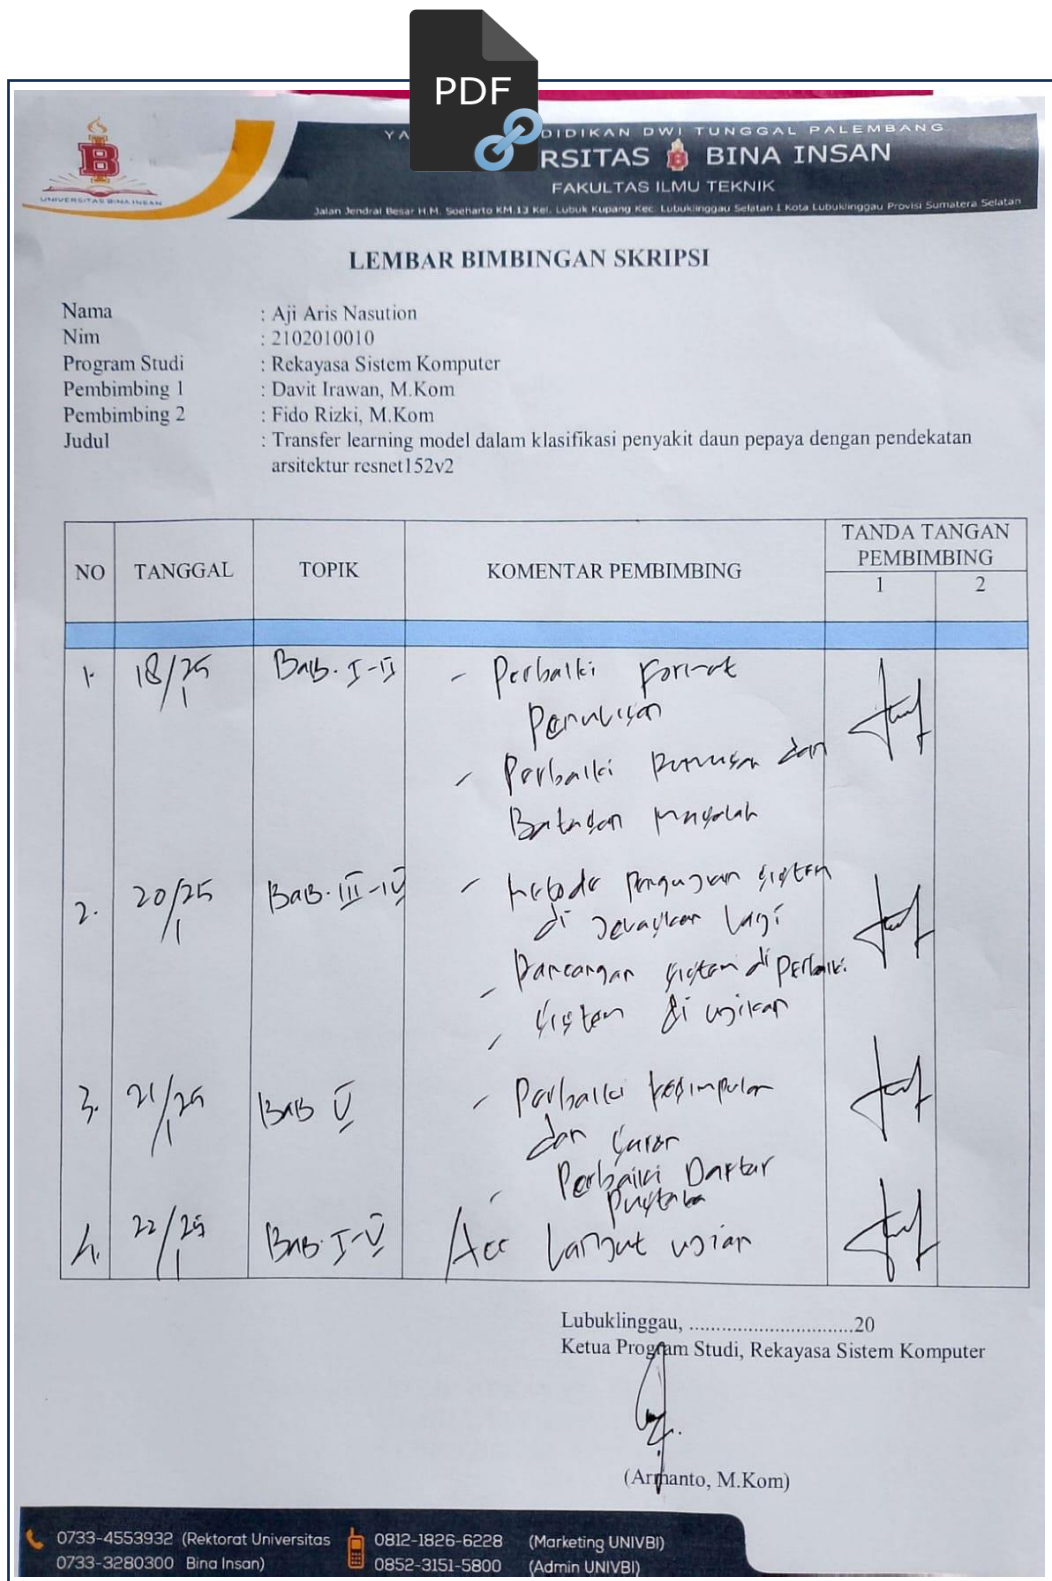 PDF
YA DIDIKAN DWI TUNGGAL PALEMBANG
RSITAS BINA INSAN
FAKULTAS ILMU TEKNIK
Jalan Jendral Besar H.M. Soeharto KM.13 Kel. Lubuk Kupang Kec. Lubuklinggau Selatan I Kota Lubuklinggau Provisi Sumatera Selatan
UNIVERSITAS BINA INSAN
LEMBAR BIMBINGAN SKRIPSI
Nama : Aji Aris Nasution
Nim : 2102010010
Program Studi : Rekayasa Sistem Komputer
Pembimbing 1 : Davit Irawan, M.Kom
Pembimbing 2 : Fido Rizki, M.Kom
Judul : Transfer learning model dalam klasifikasi penyakit daun pepaya dengan pendekatan
arsitektur resnet152v2
NO TANGGAL TOPIK KOMENTAR PEMBIMBING TANDA TANGAN
PEMBIMBING
1 2
1. 18/25 Bab. I-II - Perbaiki Format
1 Penulisan
- Perbaiki Rumusan dan
Batasan Masalah
2. 20/25 Bab. III-IV - Metode Pengujian sistem
1 di Jelaskan Lagi
- Rancangan sistem di Perbaiki.
- Sistem di ujikan
3. 21/25 Bab V - Perbaiki kesimpulan
1 dan saran
- Perbaiki Daftar
Pustaka
4. 22/25 Bab. I-V Acc Lanjut ujian
1
Lubuklinggau, ..............................20
Ketua Program Studi, Rekayasa Sistem Komputer
(Armanto, M.Kom)
0733-4553932 (Rektorat Universitas 0812-1826-6228 (Marketing UNIVBI)
0733-3280300 Bina Insan) 0852-3151-5800 (Admin UNIVBI)